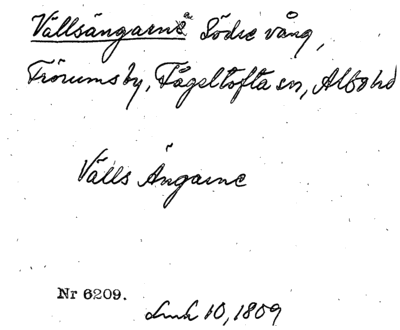 Vällsängarne Södre vång,
Frörums by, Fågeltofta sn, Albo hd
Välls Ängarne
Nr 6209.
10, 1809